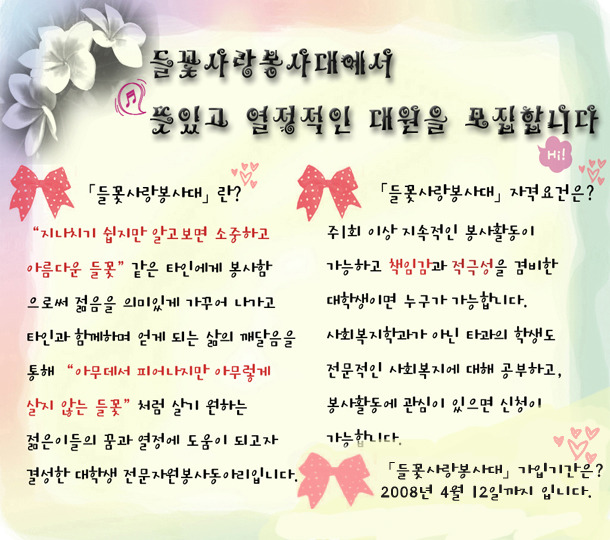 들꽃사랑봉사대에서
뜻있고 열정적인 대원을 모집합니다
Hi!
「들꽃사랑봉사대」란?
“지나치기 쉽지만 알고보면 소중하고
아름다운 들꽃” 같은 타인에게 봉사함
으로써 젊음을 의미있게 가꾸어 나가고
타인과 함께하며 얻게 되는 삶의 깨달음을
통해 “아무데서 피어나지만 아무렇게
살지 않는 들꽃” 처럼 살기 원하는
젊은이들의 꿈과 열정에 도움이 되고자
결성한 대학생 전문자원봉사동아리입니다.
「들꽃사랑봉사대」 자격요건은?
주1회 이상 지속적인 봉사활동이
가능하고 책임감과 적극성을 겸비한
대학생이면 누구가 가능합니다.
사회복지학과가 아닌 타과의 학생도
전문적인 사회복지에 대해 공부하고,
봉사활동에 관심이 있으면 신청이
가능합니다.
「들꽃사랑봉사대」 가입기간은?
2008년 4월 12일까지 입니다.